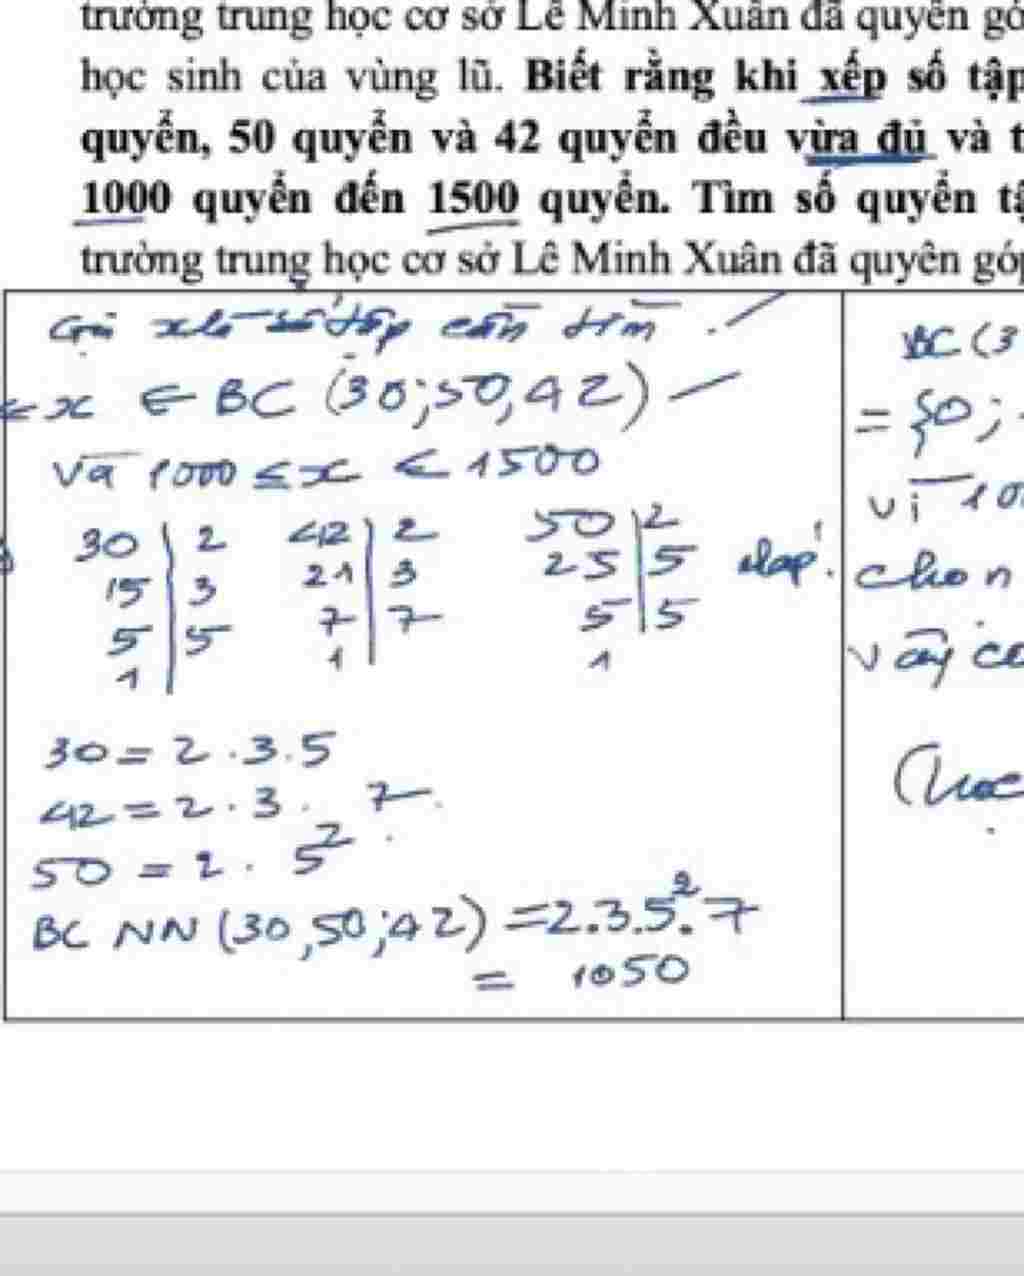 trường trung học cơ sở Lê Minh Xuân đã quyên gó
học sinh của vùng lũ. Biết rằng khi xếp số tập
quyển, 50 quyển và 42 quyển đều vừa đủ và t
1000 quyển đến 1500 quyển. Tìm số quyển tậ
trường trung học cơ sở Lê Minh Xuân đã quyên góp
Gọi x là số tập cần tìm.
x ∈ BC (30;50,42)
Và 1000 ≤ x ≤ 1500
30 | 2 42 | 2 50 | 2
15 | 3 21 | 3 25 | 5
5 | 5 7 | 7 5 | 5
1 1 1
30 = 2 . 3 . 5
42 = 2 . 3 . 7
50 = 2 . 5²
BC NN (30,50;42) = 2.3.5².7
= 1050
BC (3
= {0;
vì 10
chọn
vậy